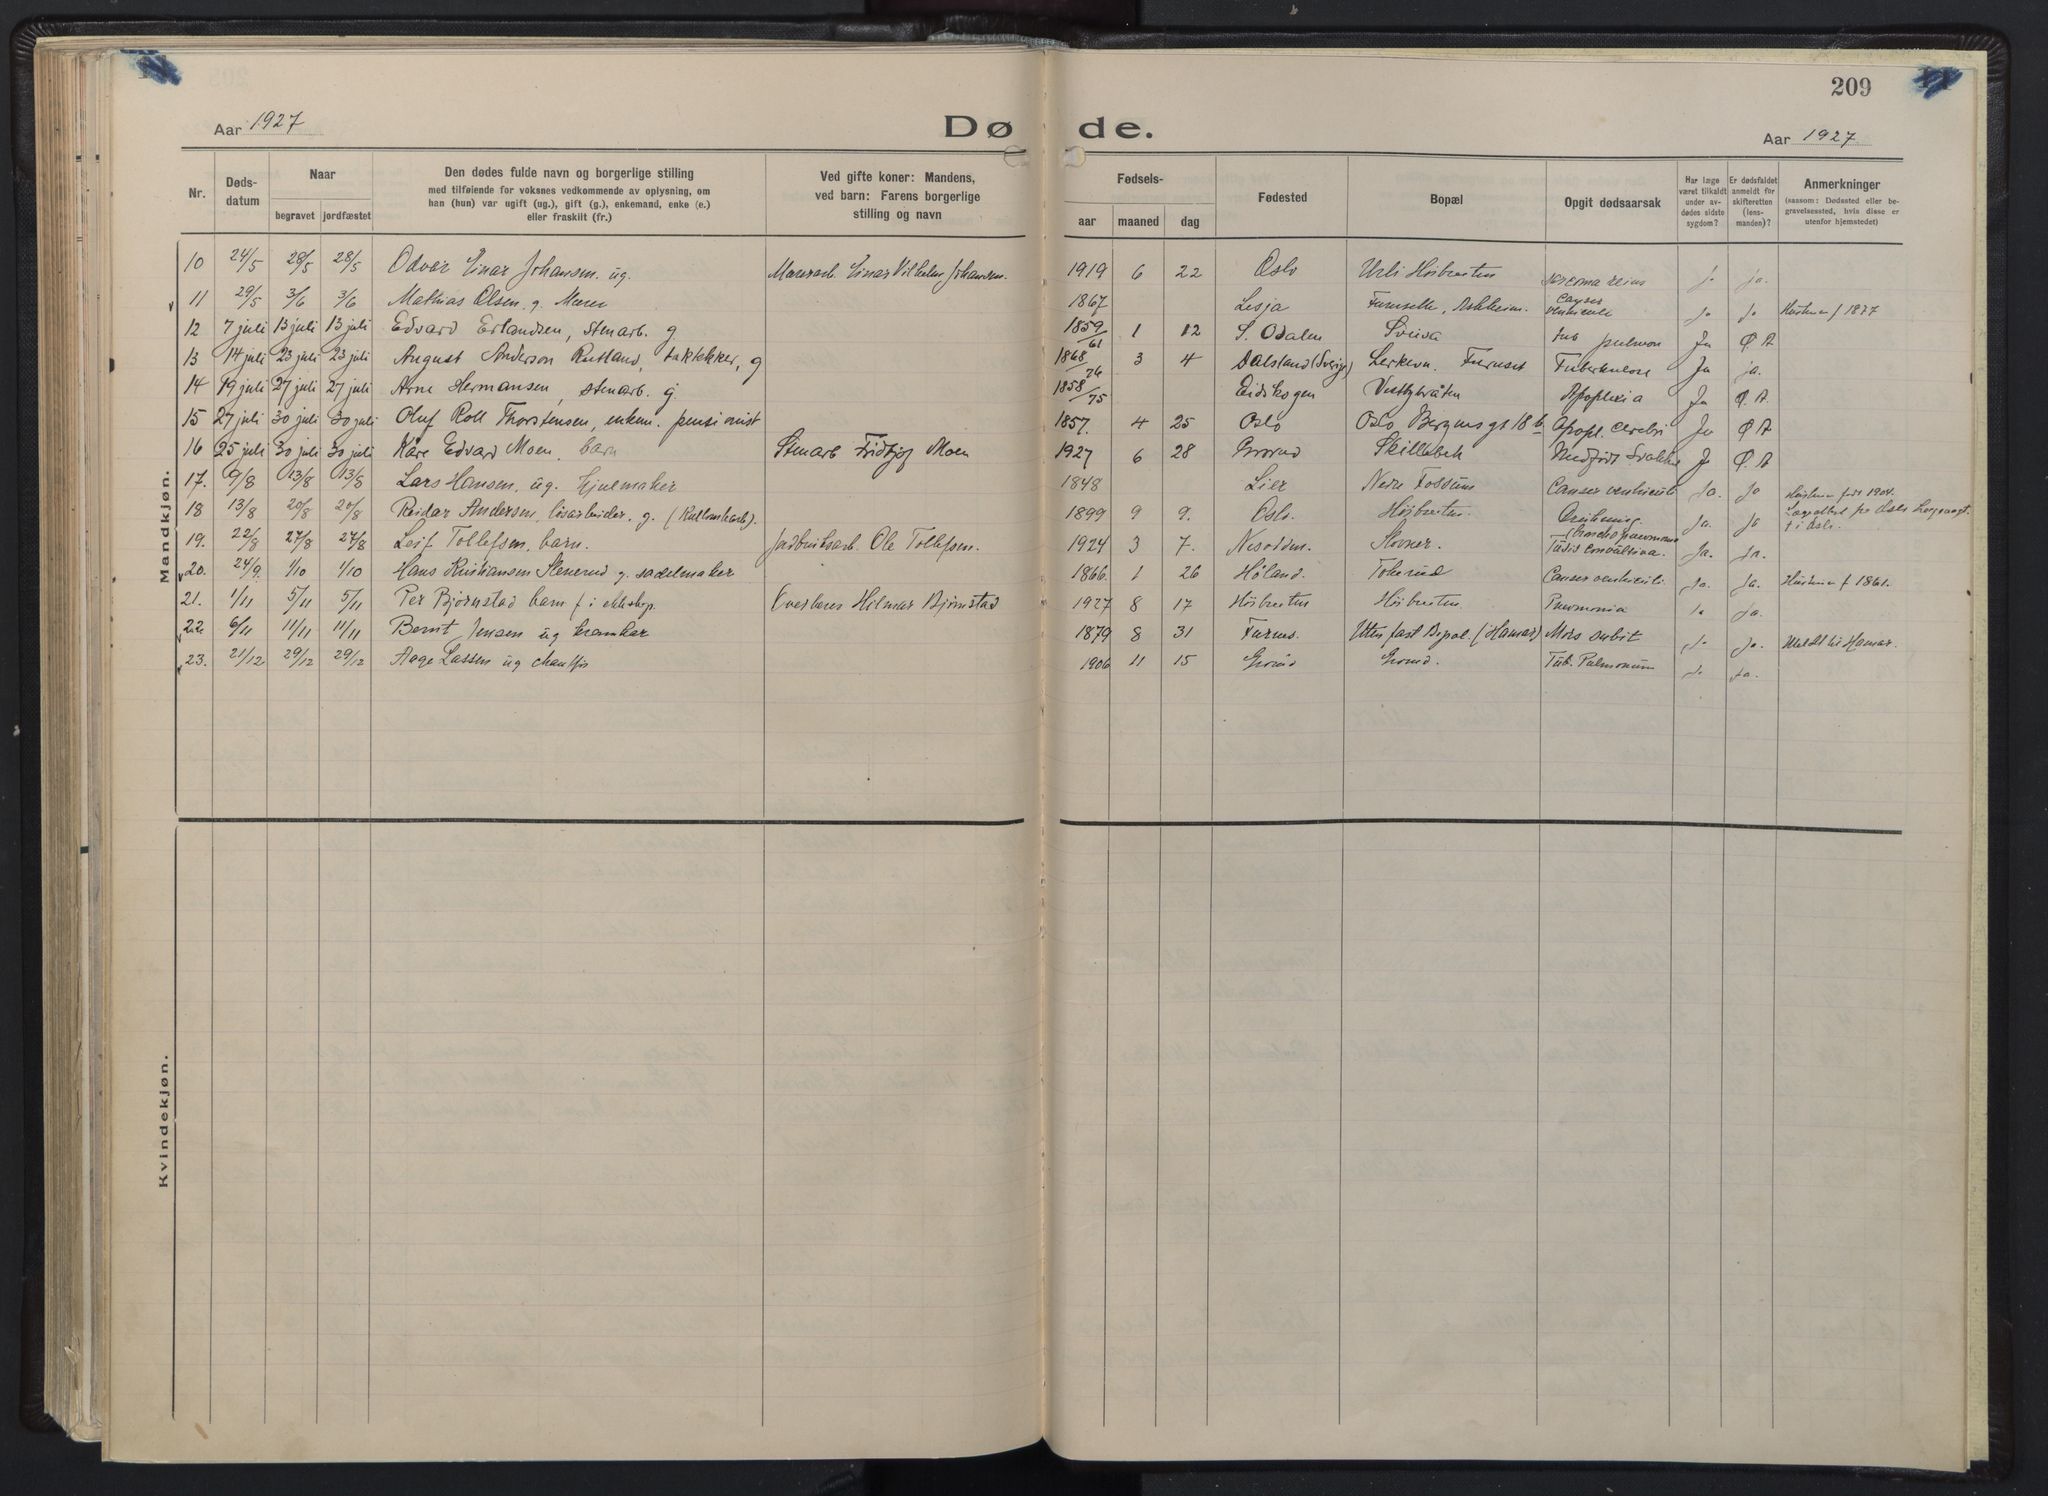 209
Aar 1927
Døde.
Aar 1927
Nr.
Døds-
datum
Naar
begravet
jordfæstet
Den dødes fulde navn og borgerlige stilling
med tilføiende for voksnes vedkommende av oplysning, om
han (hun) var ugift (ug.), gift (g.), enkemand, enke (e.)
eller fraskilt (fr.)
Ved gifte koner: Mandens,
ved barn: Farens borgerlige
stilling og navn
Fødsels-
aar
maaned
dag
Fødested
Bopæl
Opgit dødsaarsak
Har læge
været tilkaldt
under av-
dødes sidste
sygdom?
Er dødsfaldet
anmeldt for
skifteretten
(lens-
manden)?
Anmerkninger
(saasom: Dødssted eller be-
gravelsessted, hvis disse er
utenfor hjemstedet)
Mandkjøn.
10 24/5 28/5 28/5 Odvar Einar Johansen. ug. Einar Vilhelm Johansen. 1919 6 22 Oslo Høibraaten ja.
11 29/5 3/6 3/6 Mathias Olsen. g. Murer 1867 Lesja Cancer ventriculi Ja Ja
12 7 juli 13 juli 13 juli Edvard Erlandsen, Stenarb. g 1859/61 1 12 S. Odalen Tub pulmon Ja Ø A
13 14 juli 23 juli 23 juli August Anderson Rustland, taktekker, g 1868/76 3 4 Dalsland (Sverige) Furuset Tuberkulose Ja ja.
14 19 juli 27 juli 27 juli Arne Hermansen, stenarb. g 1858/75 Eidskogen Vestbybråten Apoplexia Ja Ø. A.
15 27 juli 30 juli 30 juli Oluf Roll Thorstensen, enkem. pensionist 1857. 4 25 Oslo Oslo Bergensgt 18 b Apopl. cerebri Ja Ø A
16 25 juli 30 juli 30 juli Kåre Edvard Moen, barn Stenarb Fridtjof Moen 1927 6 28 Grorud Skillebek Medfødt Svakhet Ja Ø. A
17. 9/8 13/8 13/8 Lars Hansen. ug. hjulmaker 1848 Lier Nedre Fossum Cancer ventriculi Ja. Ja
18 13/8 20/8 20/8 Reidar Andersen, løsarbeider. g. 1899 9 9. Oslo. Høibraaten. Ja. Ja
19. 22/8 27/8 27/8 Leif Tollefsen, barn. Jordbruksarb. Ole Tollefsen. 1924 3 7. Nesodden. Stovner. Bronchopneumoni Tussis convulsiva. Ja. Ja.
20. 24/9. 1/10 1/10 Hans Kristiansen Stenerud g. sadelmaker 1866. 1 26 Høland. Tokerud Cancer ventriculi. Ja. Ja. Hustru f 1861.
21. 1/11 5/11 5/11 Per Bjørnstad barn f i ektskap. Hilmar Bjørnstad 1927 8 17 Høibraaten Høibraaten Pneumonia Ja.
22 6/11 11/11 11/11 Bernt Jensen ug kramkar 1879 8 31 Furnes. Uten fast Bopæl. (Hamar) Mors subit Ja. Meldt til Hamar.
23. 21/12 29/12 29/12 Aage Lassen ug chauffør 1906 11 15 Grorud Grorud. Tub. Pulmonum Ja.
Kvindekjøn.